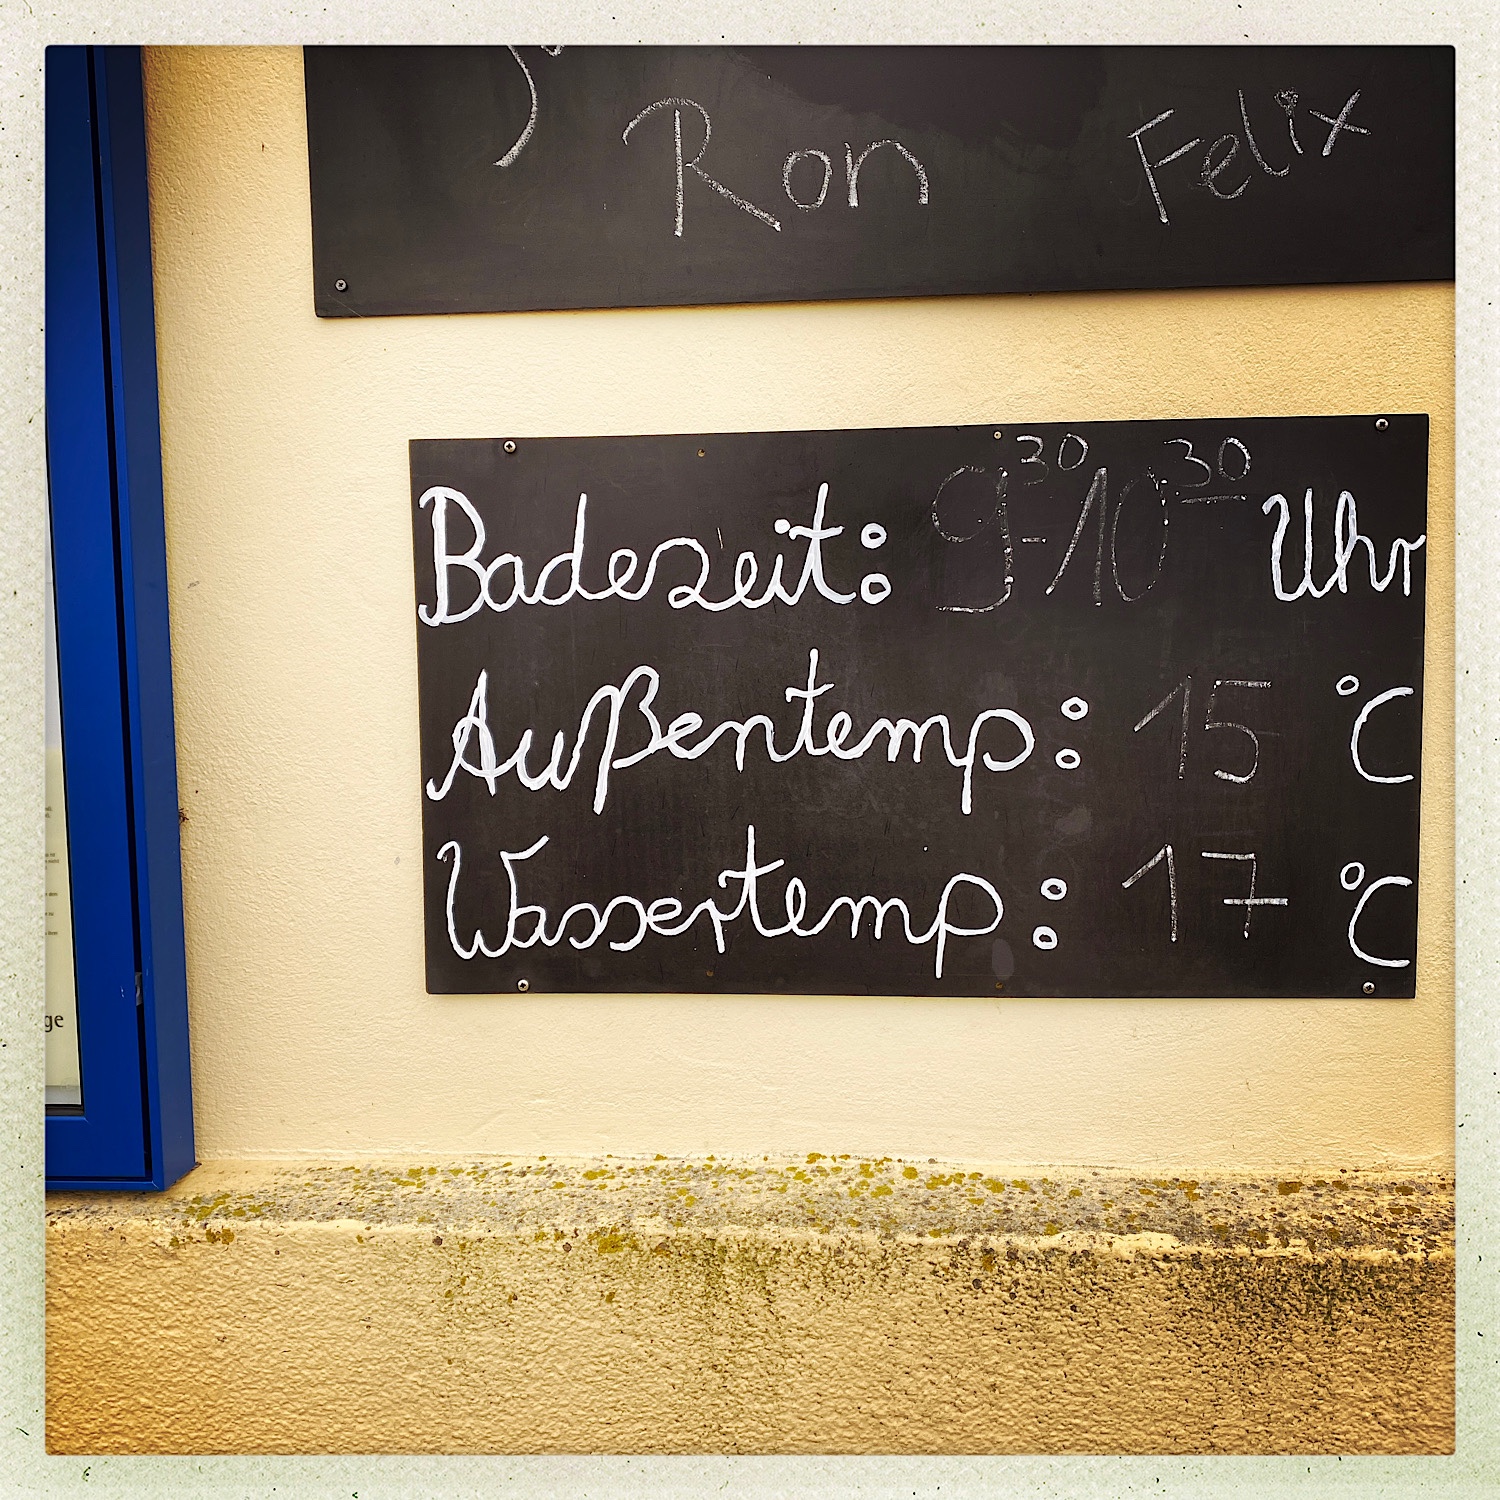 Ron Felix
Badezeit: 9³⁰-10³⁰ Uhr
Außentemp: 15 °C
Wassertemp: 17 °C
ge